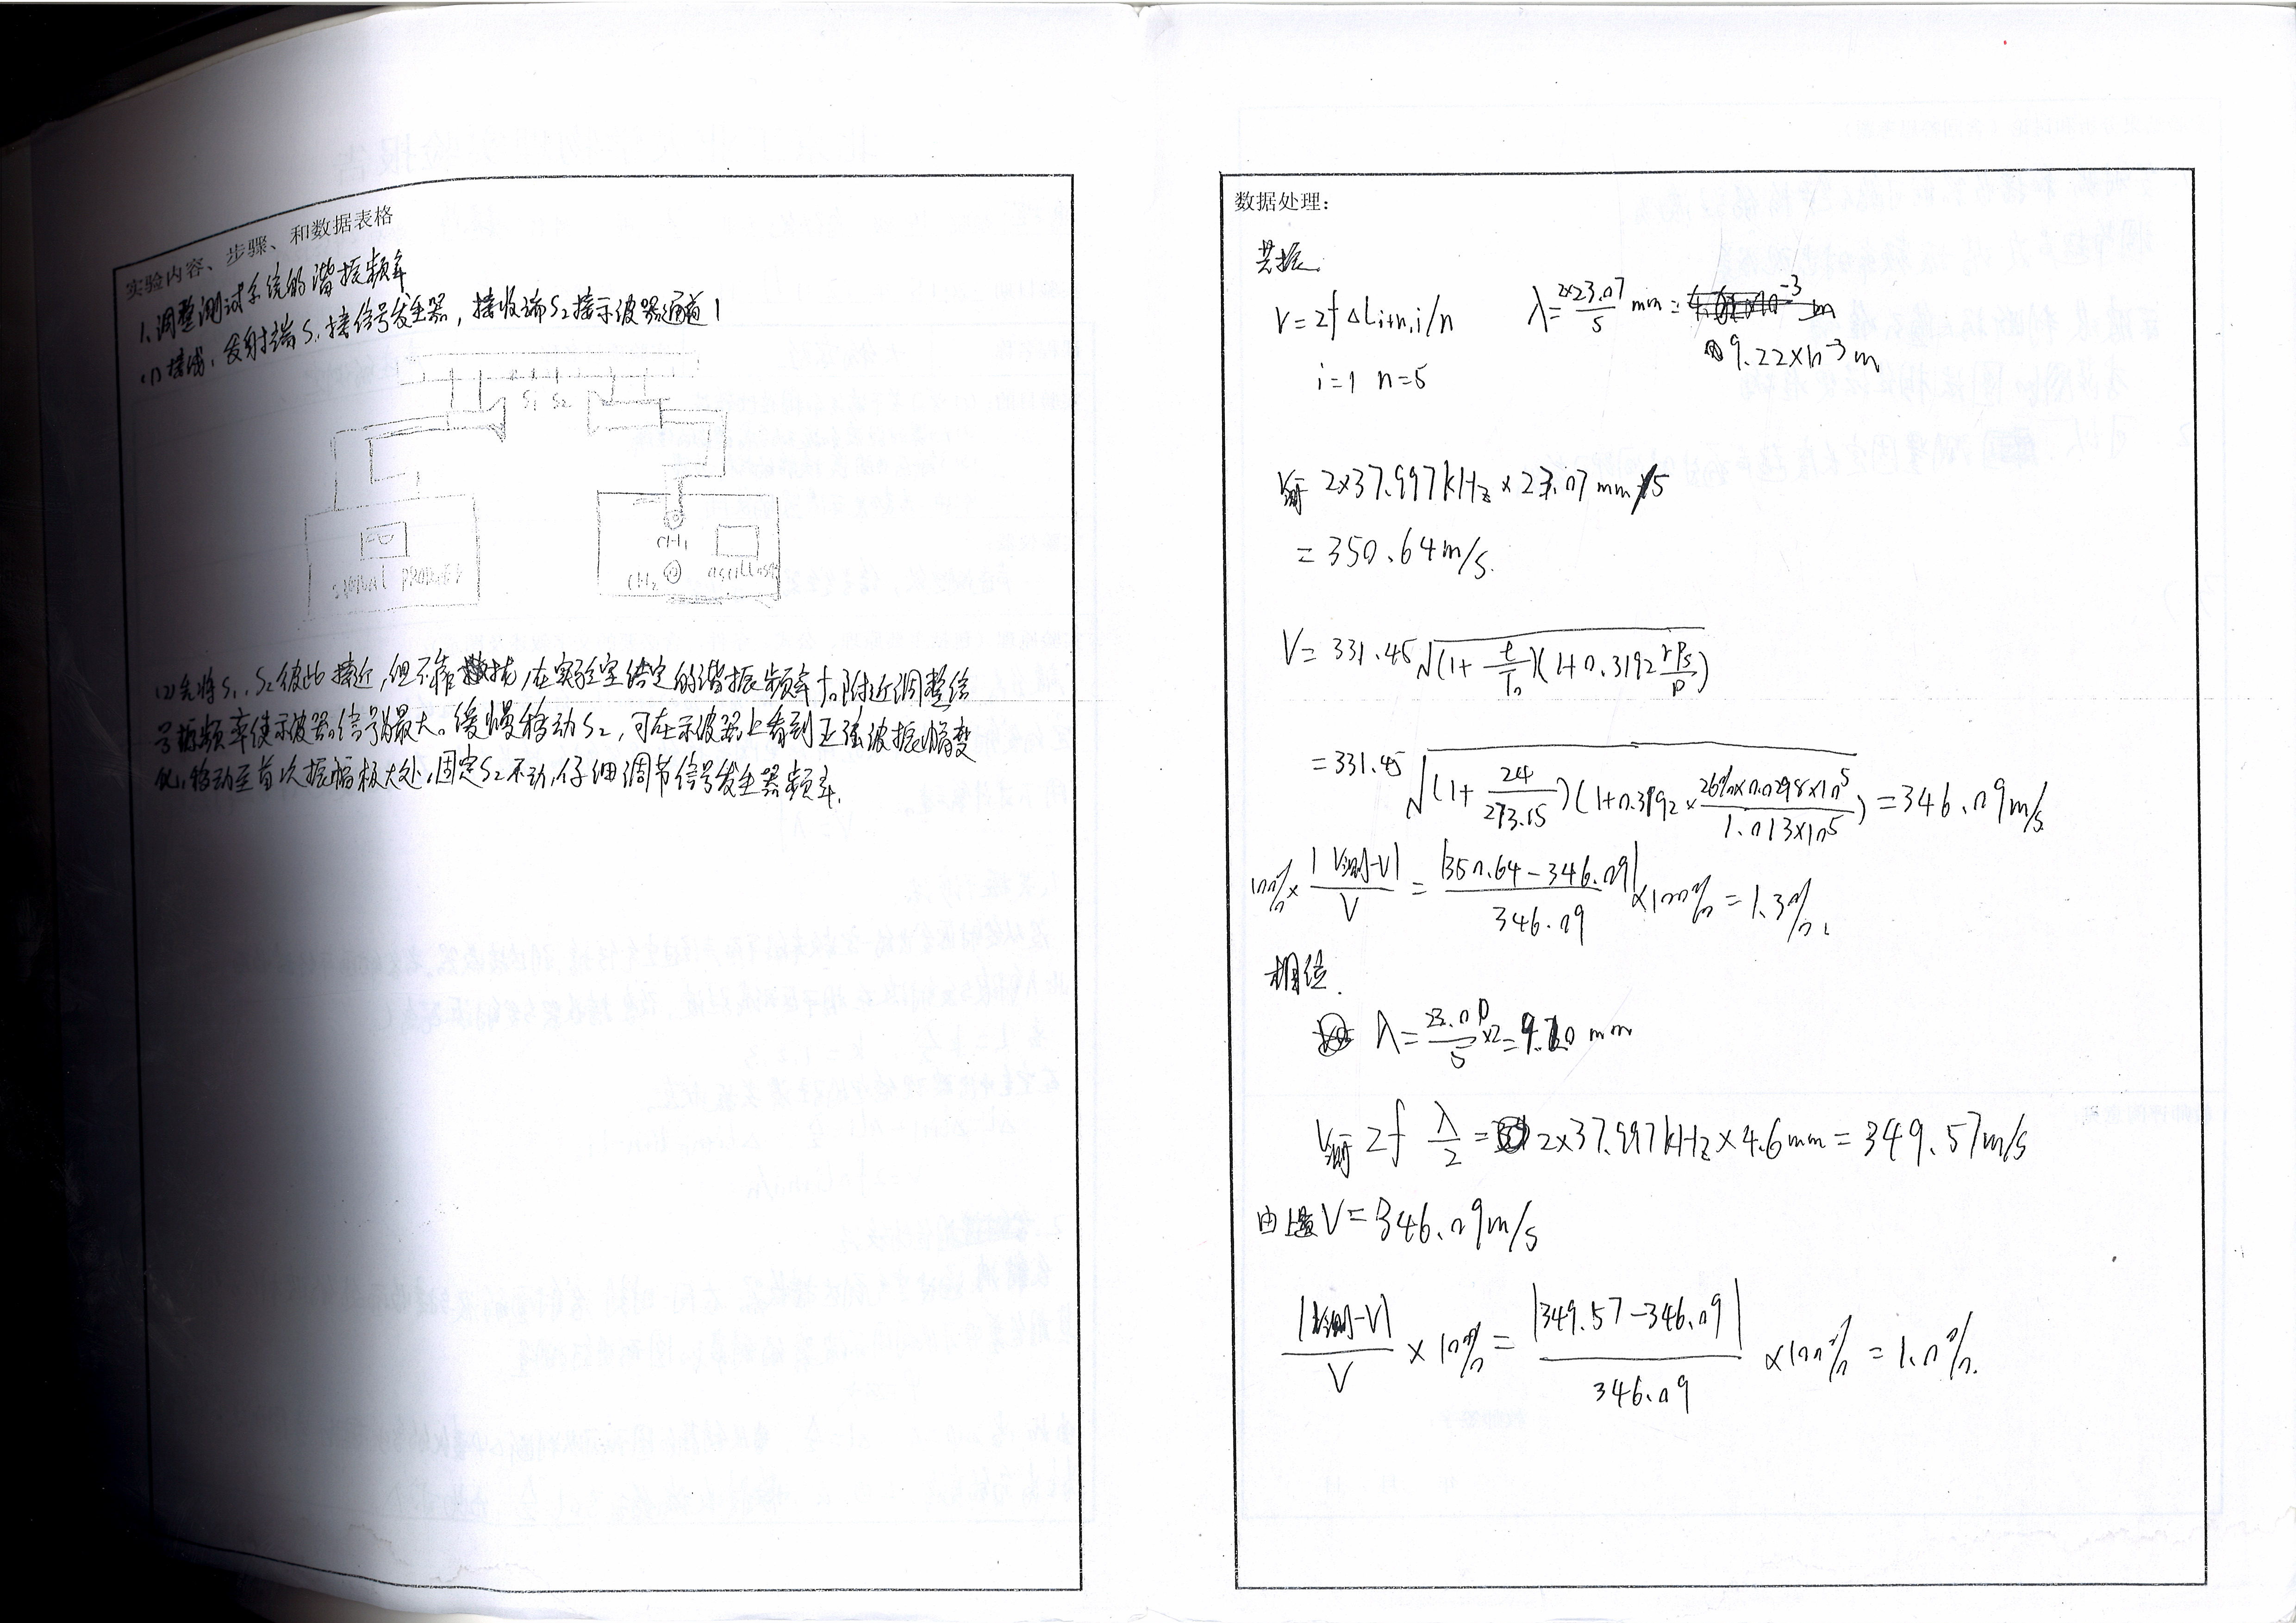 实验内容、步骤、和数据表格
1.调整测试系统的谐振频率
(1)接线,发射端S₁接信号发生器,接收端S₂接示波器通道1
S₁ S₂
CH₁
CH₂
signal
(2)先将S₁、S₂彼此接近,但不靠,在实验室给定的谐振频率f₀附近调整信
号频率使示波器信号最大。缓慢移动S₂,可在示波器上看到正弦波振幅变
化,移动至首次振幅极大处,固定S₂不动,仔细调节信号发生器频率.
数据处理:
共振.
V=2fΔLi+n,i/n λ=2×23.07/5 mm=
9.22×10⁻³m
i=1 n=5
V测=2×37.997kHz×23.07mm/5
=350.64m/s.
V=331.45√(1+t/T₀)(1+0.3192 rPs/P)
=331.45√(1+24/273.15)(1+0.3192×26%×0.0298×10⁵/1.013×10⁵)=346.09m/s
100%×|V测-V|/V=|350.64-346.09|/346.09×100%=1.3%.
相位.
λ=23.00/5×2=9.20mm
V测=2f λ/2=2×37.997kHz×4.6mm=349.57m/s
由上 V=346.09m/s
|V测-V|/V×100%=|349.57-346.09|/346.09×100%=1.0%.